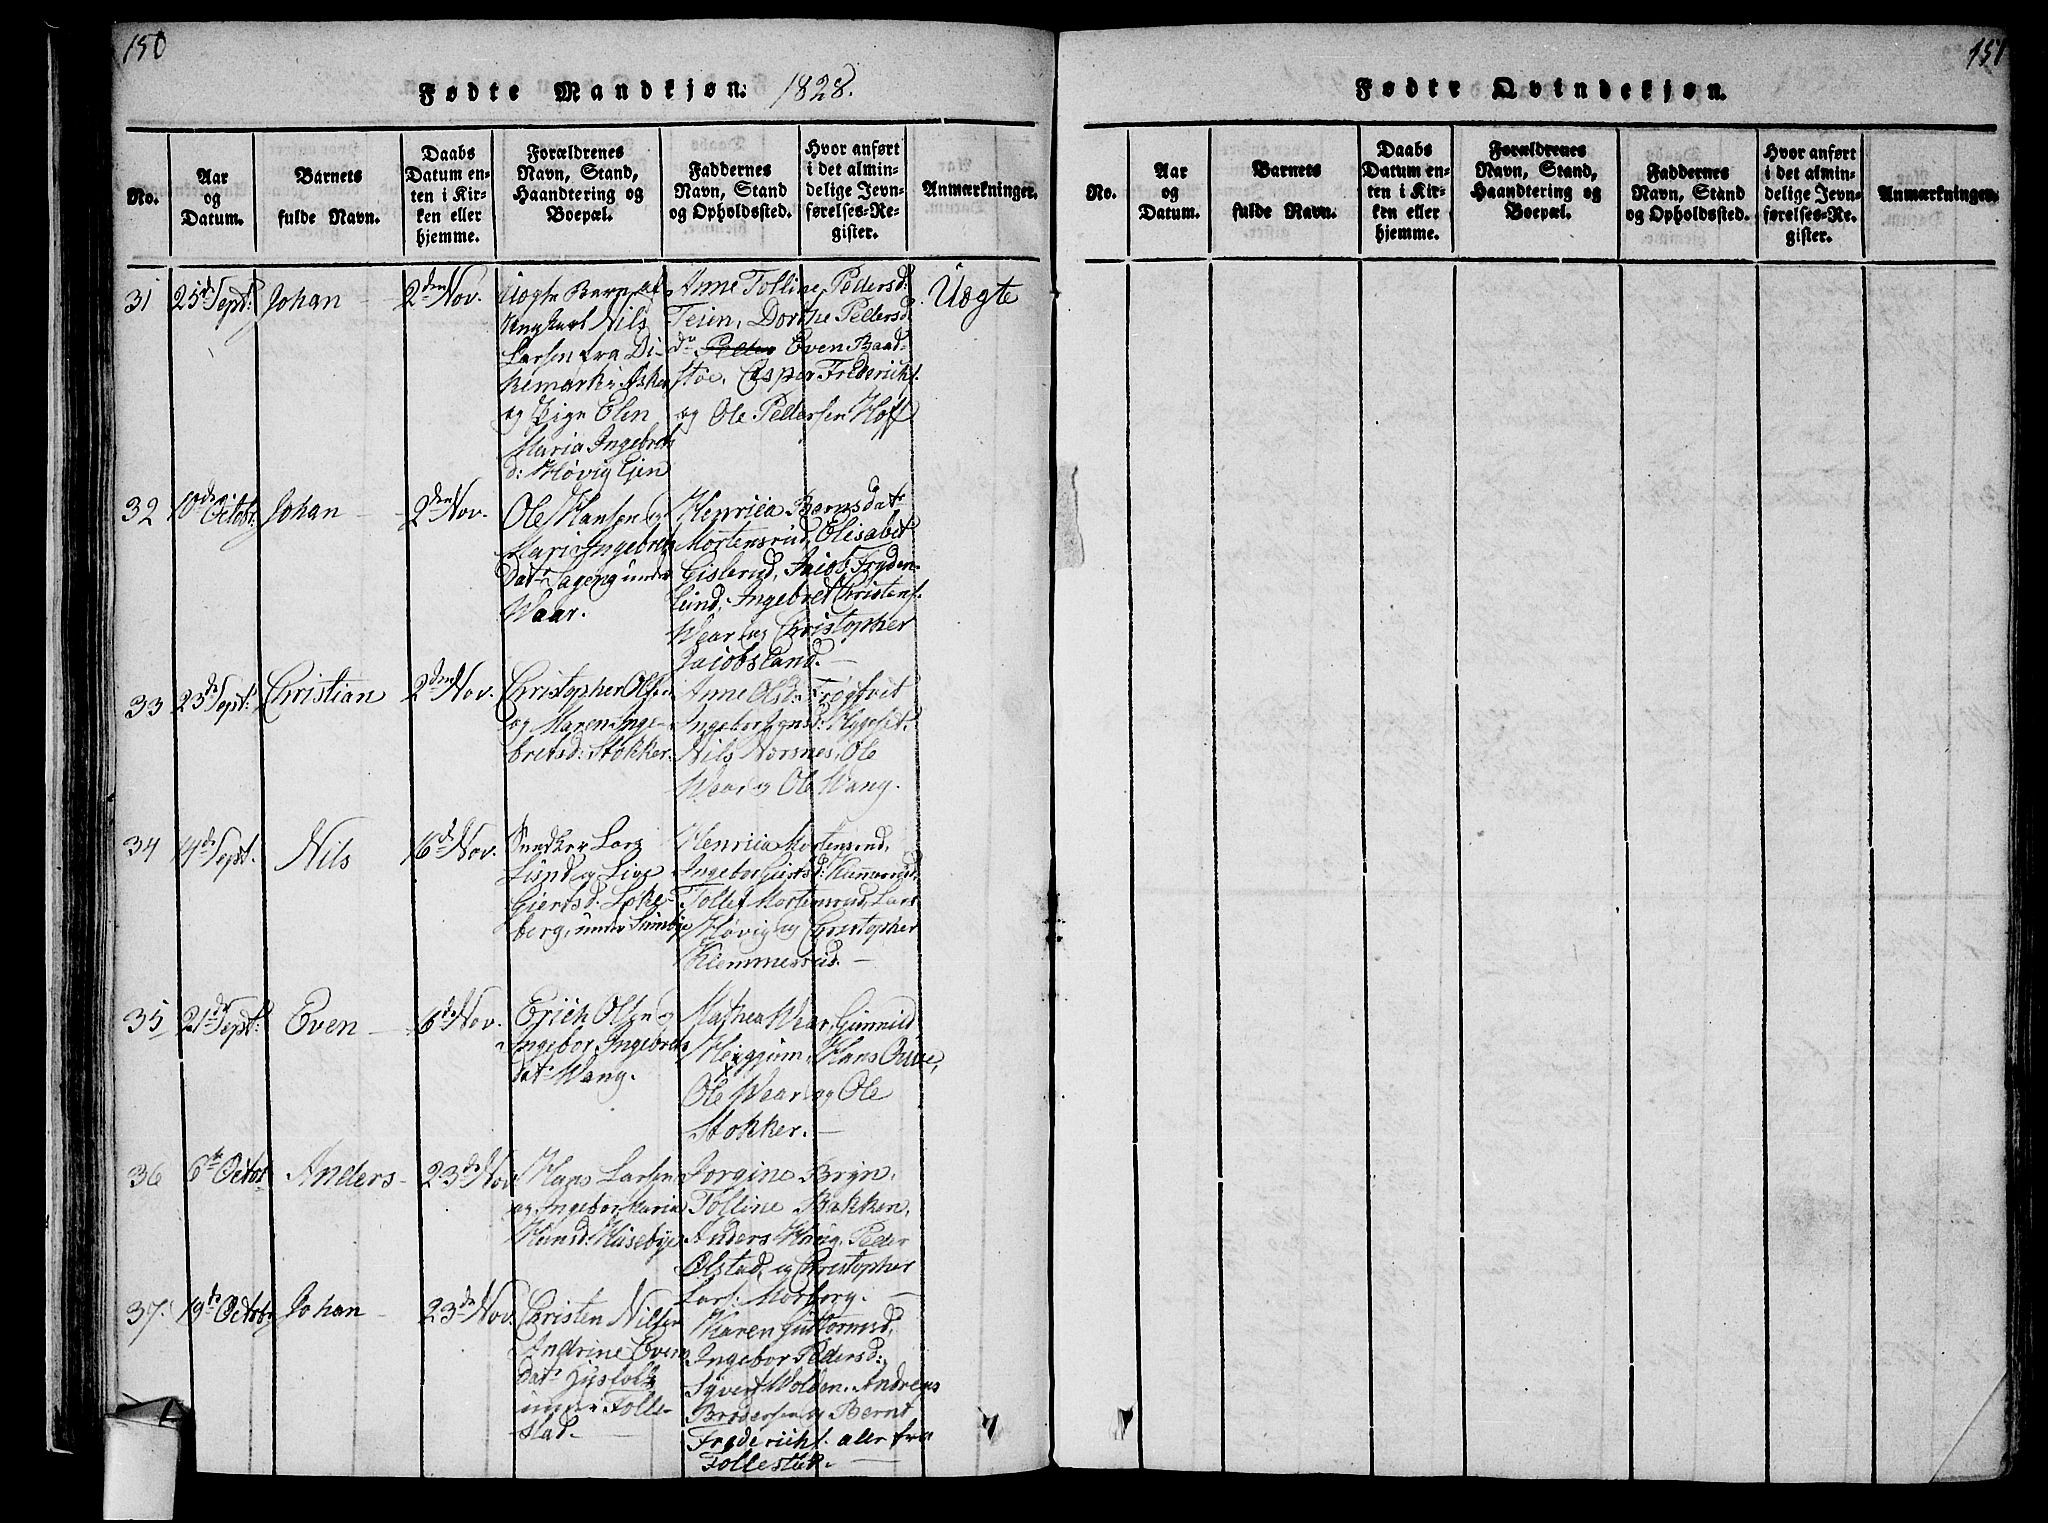 150
Fødte Mandkjøn. 1828.
No.
Aar
og
Datum.
Barnets
fulde Navn.
Daabs
Datum en-
ten i Kir-
ken eller
hjemme.
Forældrenes
Navn, Stand,
Haandtering og
Boepæl.
Faddernes
Navn, Stand
og Opholdssted.
Hvor anført
i det almin-
delige Jevn-
førelses-Re-
gister.
Anmærkninger.
31
25d Sept:
Johan
2den Nov.
Uægte Barn af
Ungkarl Nils
Larsen fra Di-
kemark i Asker
og Pige Elen
Maria Ingebrets
d: Høvig Ejen
Anne Tolline Pedersd:
Teien, Dorthe Pedersd
do Peder Even Baad-
støe, Casper Frederichs.
og Ole Pedersen Hoff
Uægte
32
10de Octobr
Johan
2den Nov.
Ole Hansen og
Mari Ingebrets
datr Sageng under
Waar.
Henrica Berns datr
Mortensrud, Elisabet
Gislerud, Jacob Fryden-
lund, Ingebret Christens.
Waar og Christopher
Jacobsland.
33
23de Sept:
Christian
2den Nov.
Christopher Olsen
og Maren Inge-
bretsd: Stokker.
Anne Olsd: Frogtvet
Nils Norsnes, Ole
Waar og Ole Wang.
34
19de Sept.
Nils
16d Nov.
Snedker Lars
Lund og Live
Giertsd. Løke-
berg, under
Henrica Mortensrud,
Ingebor Giertsd:
Tollef Mortensrud, Lars
Høvig og Christopher
Klemmesrud.
35
21de Sept:
Even
16de Nov.
Erich Olsen og
Ingebor Ingebrets
datr Wang.
Mathea Waar, Gunnild
Heggum, Hans
Ole Waar og Ole
Stokker.
36
6te Octobr
Anders
23de Nov
Hans Larsen
og Ingebor Maria
Hansd: Huseby
Jorgine Bryn,
Tolline Bakken,
Anders Haug, Peder
Ølstad, og Christopher
Lars. Morberg.
37.
19de Octobr
Johan
23de Nov.
Christen Nilsen
Andrine Evens
datr
under Tolle-
stad.
Karen Guttormsd,
Ingebor Pedersd:
Syvert Wolden, Andreas
Brodersen og Bernt
Frederichs. alle fra
Follestad.
151
Fødte Qvindekjøn.
No.
Aar
og
Datum.
Barnets
fulde Navn.
Daabs
Datum en-
ten i Kir-
ken eller
hjemme.
Forældrenes
Navn, Stand,
Haandtering og
Boepæl.
Faddernes
Navn, Stand
og Opholdssted.
Hvor anført
i det almin-
delige Jevn-
førelses-Re-
gister.
Anmærkninger.